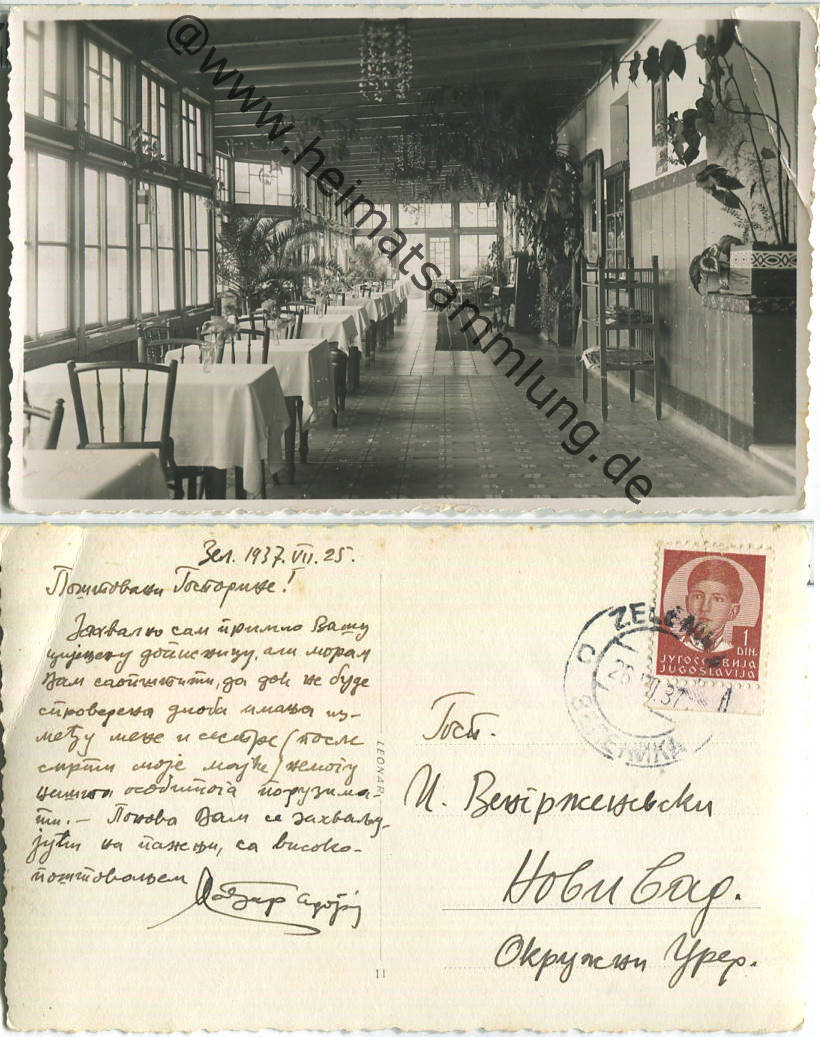 @www.heimatsammlung.de
Зел. 1937. VII. 25.
Поштовани Господине!
Захвално сам примио Вашу
цијењену дописницу, али морам
Вам саопштити, да док не буде
спроведена диоба имања из-
међу мене и сестре (после
смрти моје мајке) немогу
ништа особитога
ти. — Понова Вам се захваљу-
јући на пажњи, са високо-
поштовањем
LEONAR
11
ZELENIKA
ЗЕЛЕНИКА
26 VII 37
1
DIN.
ЈУГОСЛАВИЈА
JUGOSLAVIJA
Госп.
И. Венгржењвски
Нови Сад.
Окружни Уред.